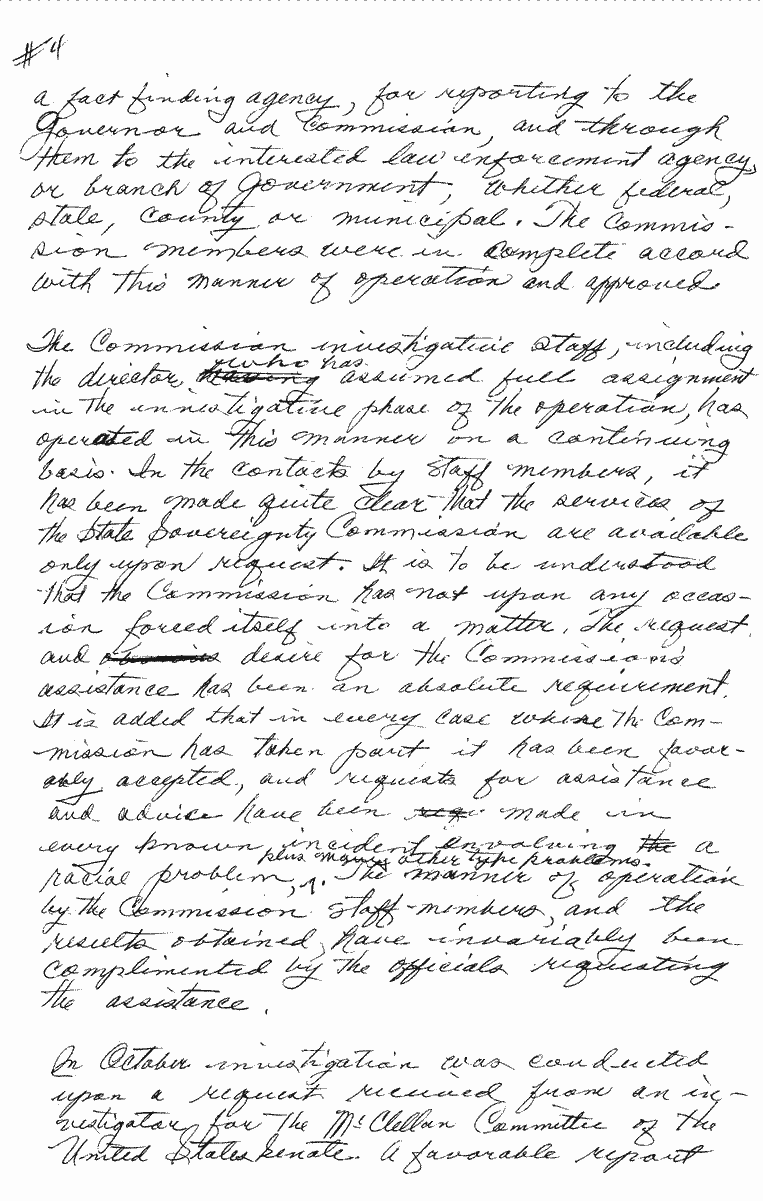 #4
a fact finding agency, for reporting to the
Governor and Commission, and through
them to the interested law enforcement agency,
or branch of Government, whether federal,
state, county or municipal. The Commis-
sion members were in complete accord
with this manner of operation and approved.
The Commission investigative staff, including
who has
the director, having assumed full assignment
in the investigative phase of the operation, has
operated in this manner on a continuing
basis. In the contacts by staff members, it
has been made quite clear that the services of
the State Sovereignty Commission are available
only upon request. It is to be understood
that the Commission has not upon any occas-
ion forced itself into a matter. The request
and desire for the Commission's
assistance has been an absolute requirement.
It is added that in every case where the Com-
mission has taken part it has been favor-
ably accepted, and requests for assistance
and advice have been req. made in
every known incident involving the a
plus many other type problems.
racial problem, . The manner of operation
by the Commission staff-members, and the
results obtained, have invariably been
complimented by the officials requesting
the assistance.
In October investigation was conducted
upon a request received from an in-
vestigator for the McClellan Committee of the
United States Senate. A favorable report